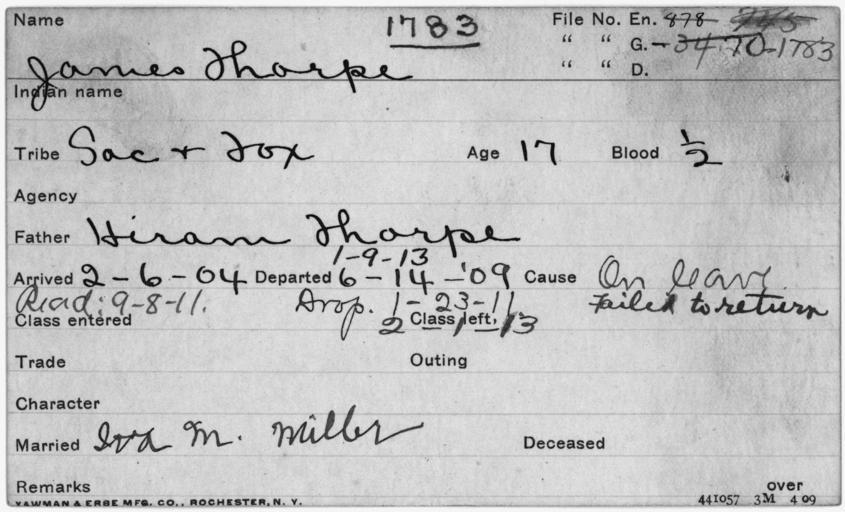 Name 1783 File No. En. 878
" " G. - 34.70-1783
James Thorpe " " D.
Indian name
Tribe Sac + Fox Age 17 Blood 1/2
Agency
Father Hiram Thorpe
1-9-13
Arrived 2-6-04 Departed 6-14-'09 Cause On leave.
Read: 9-8-11. Drop. 1-23-11 Failed to return
Class entered Class left,
Trade Outing
Character
Married Iva M. Miller Deceased
Remarks over
YAWMAN & ERBE MFG. CO., ROCHESTER, N. Y. 441057 3M 4 09